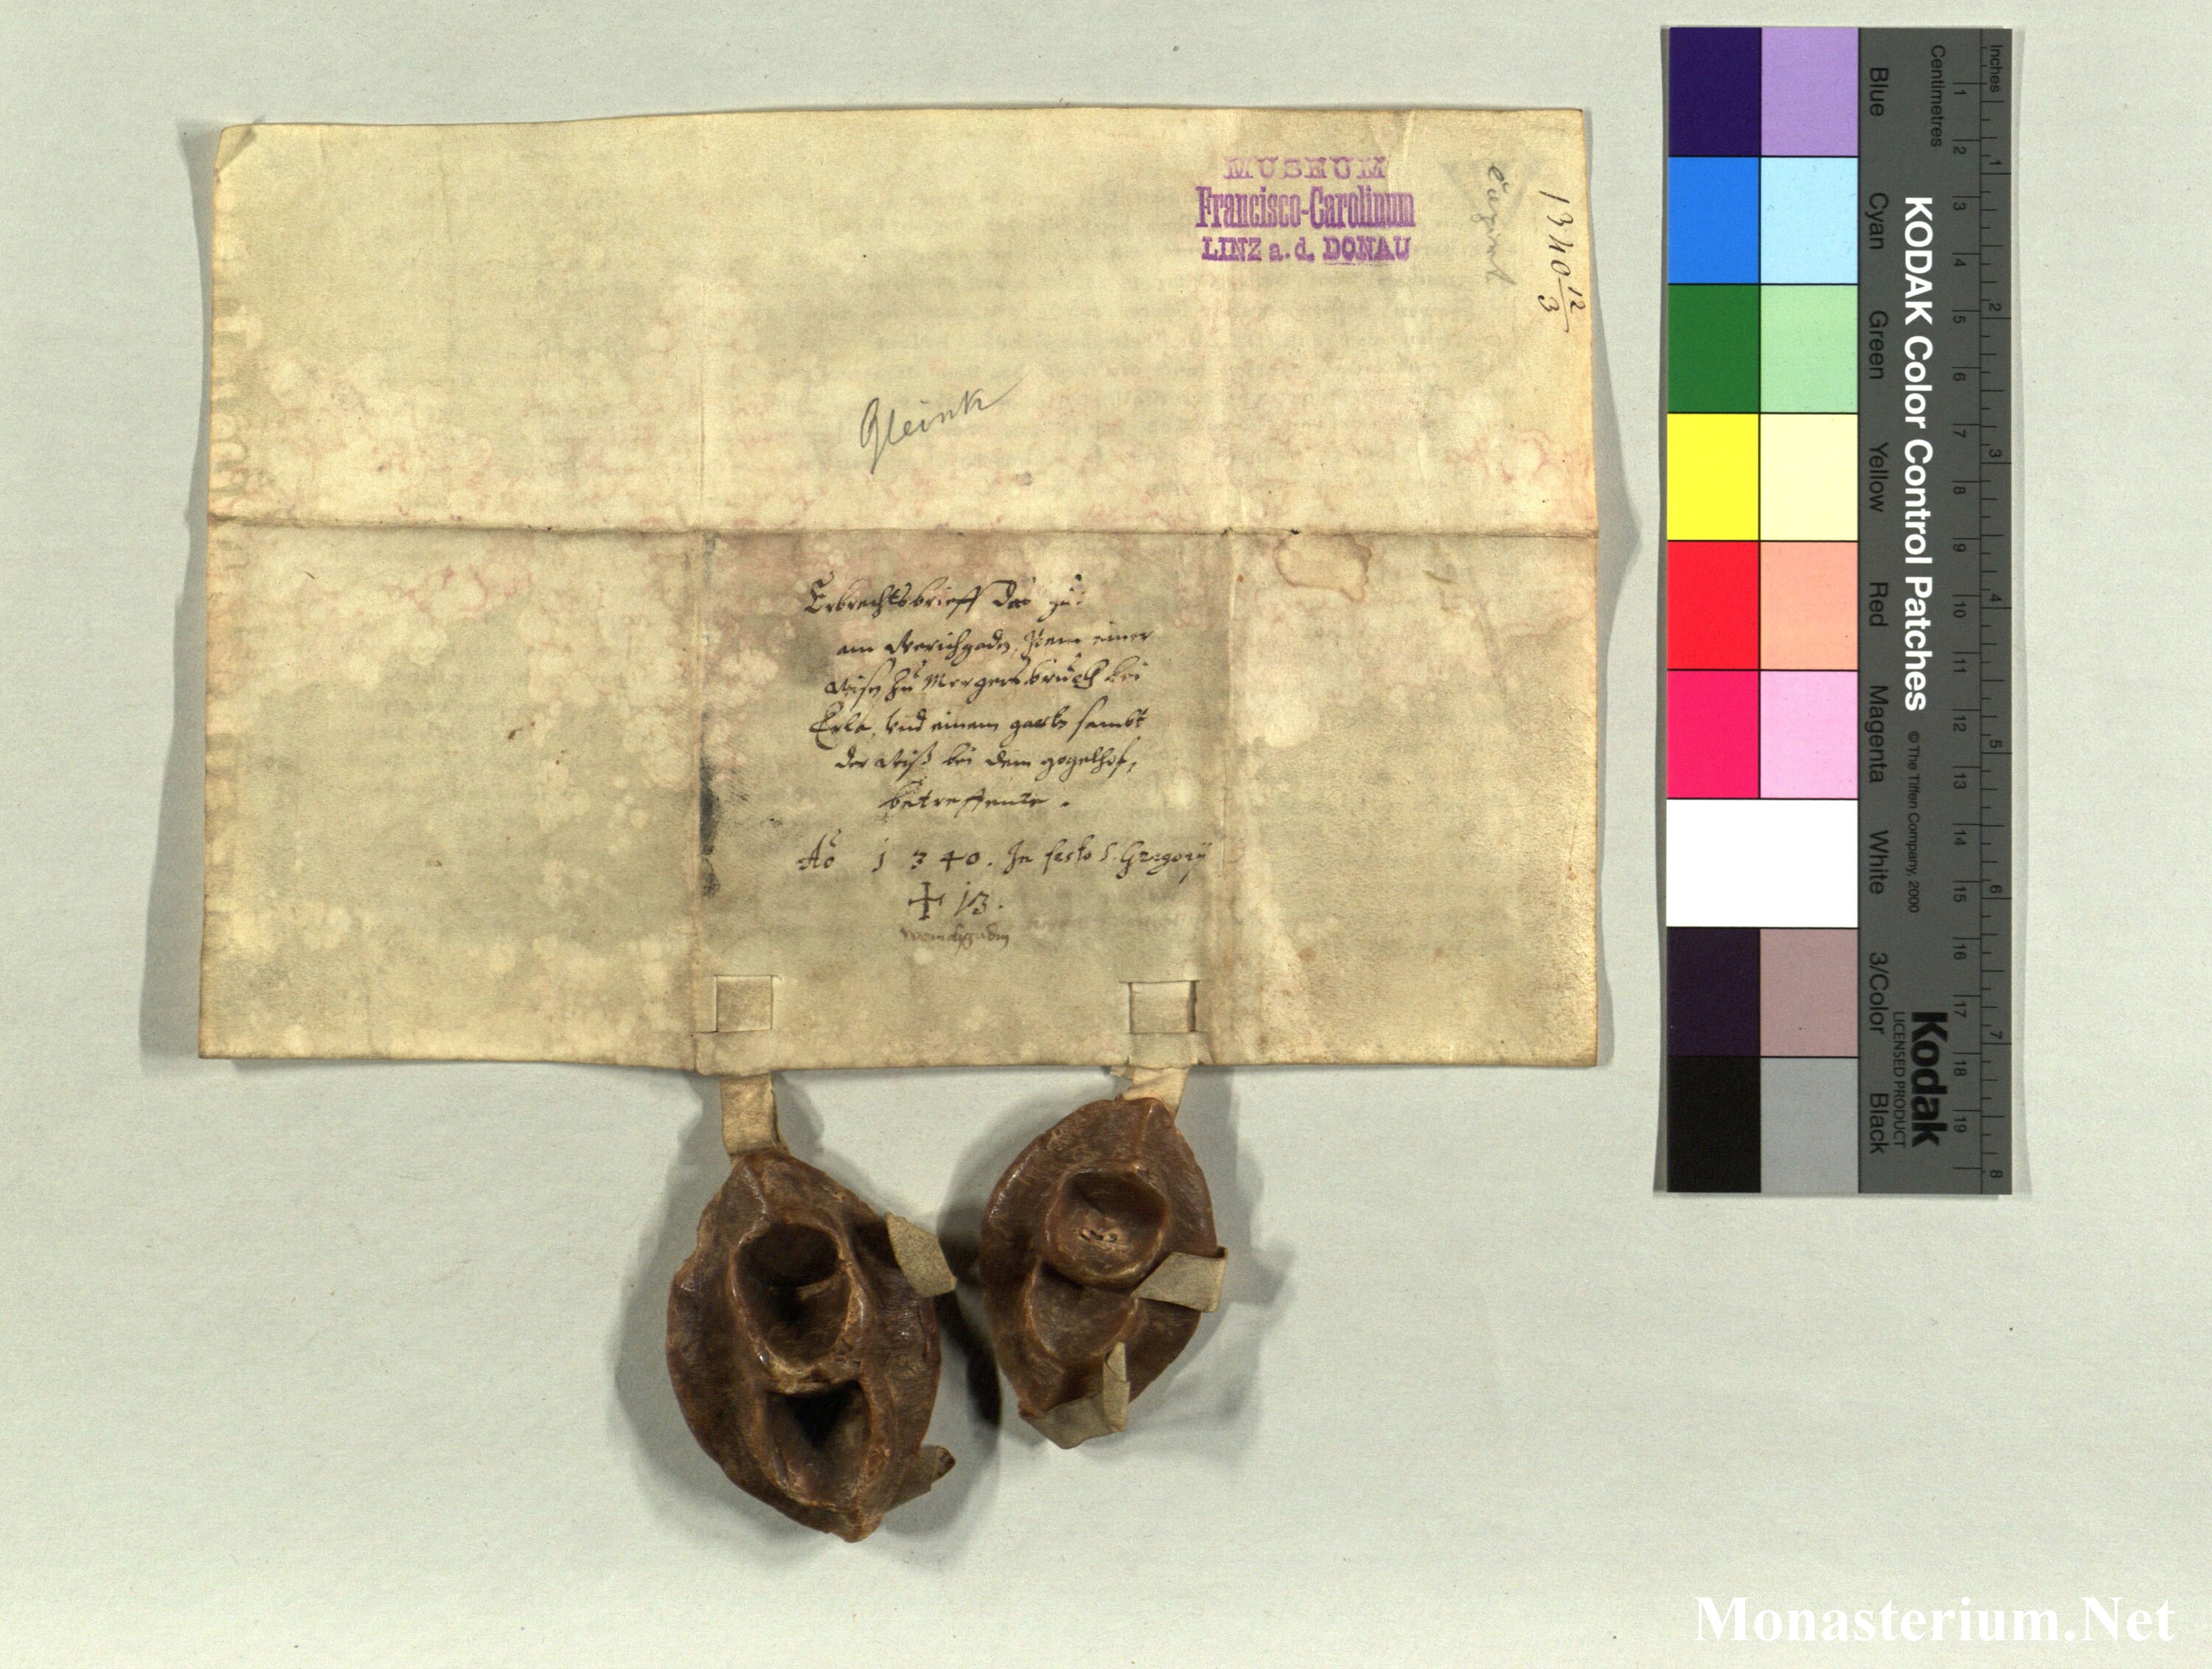 MUSEUM
Francisco-Carolinum
LINZ a. d. DONAU
1340 12/3
Gleink
Erbrechtsbrieff das zu:
am Werichgadn, Item einer
Wisn zu Mergersbruch bei
Erla, vnd einem gartn sambt
der Wiß bei dem gogelhof,
betreffente.
Ao 1340. In festo S. Gregorÿ
+ 13.
KODAK Color Control Patches
© The Tiffen Company, 2000
Kodak
LICENSED PRODUCT
Inches
1 2 3 4 5 6 7 8
Centimetres
1 2 3 4 5 6 7 8 9 10 11 12 13 14 15 16 17 18 19
Blue
Cyan
Green
Yellow
Red
Magenta
White
3/Color
Black
Monasterium.Net